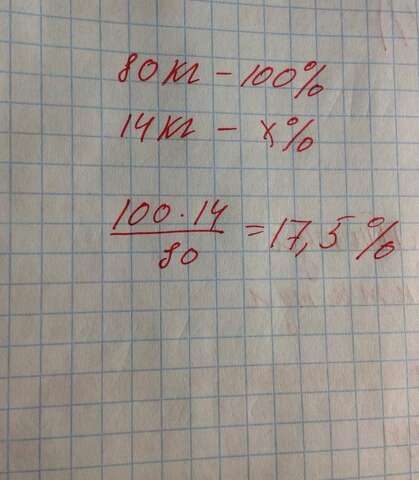 80кг - 100%
14кг - x%
100 · 14
80
= 17,5 %